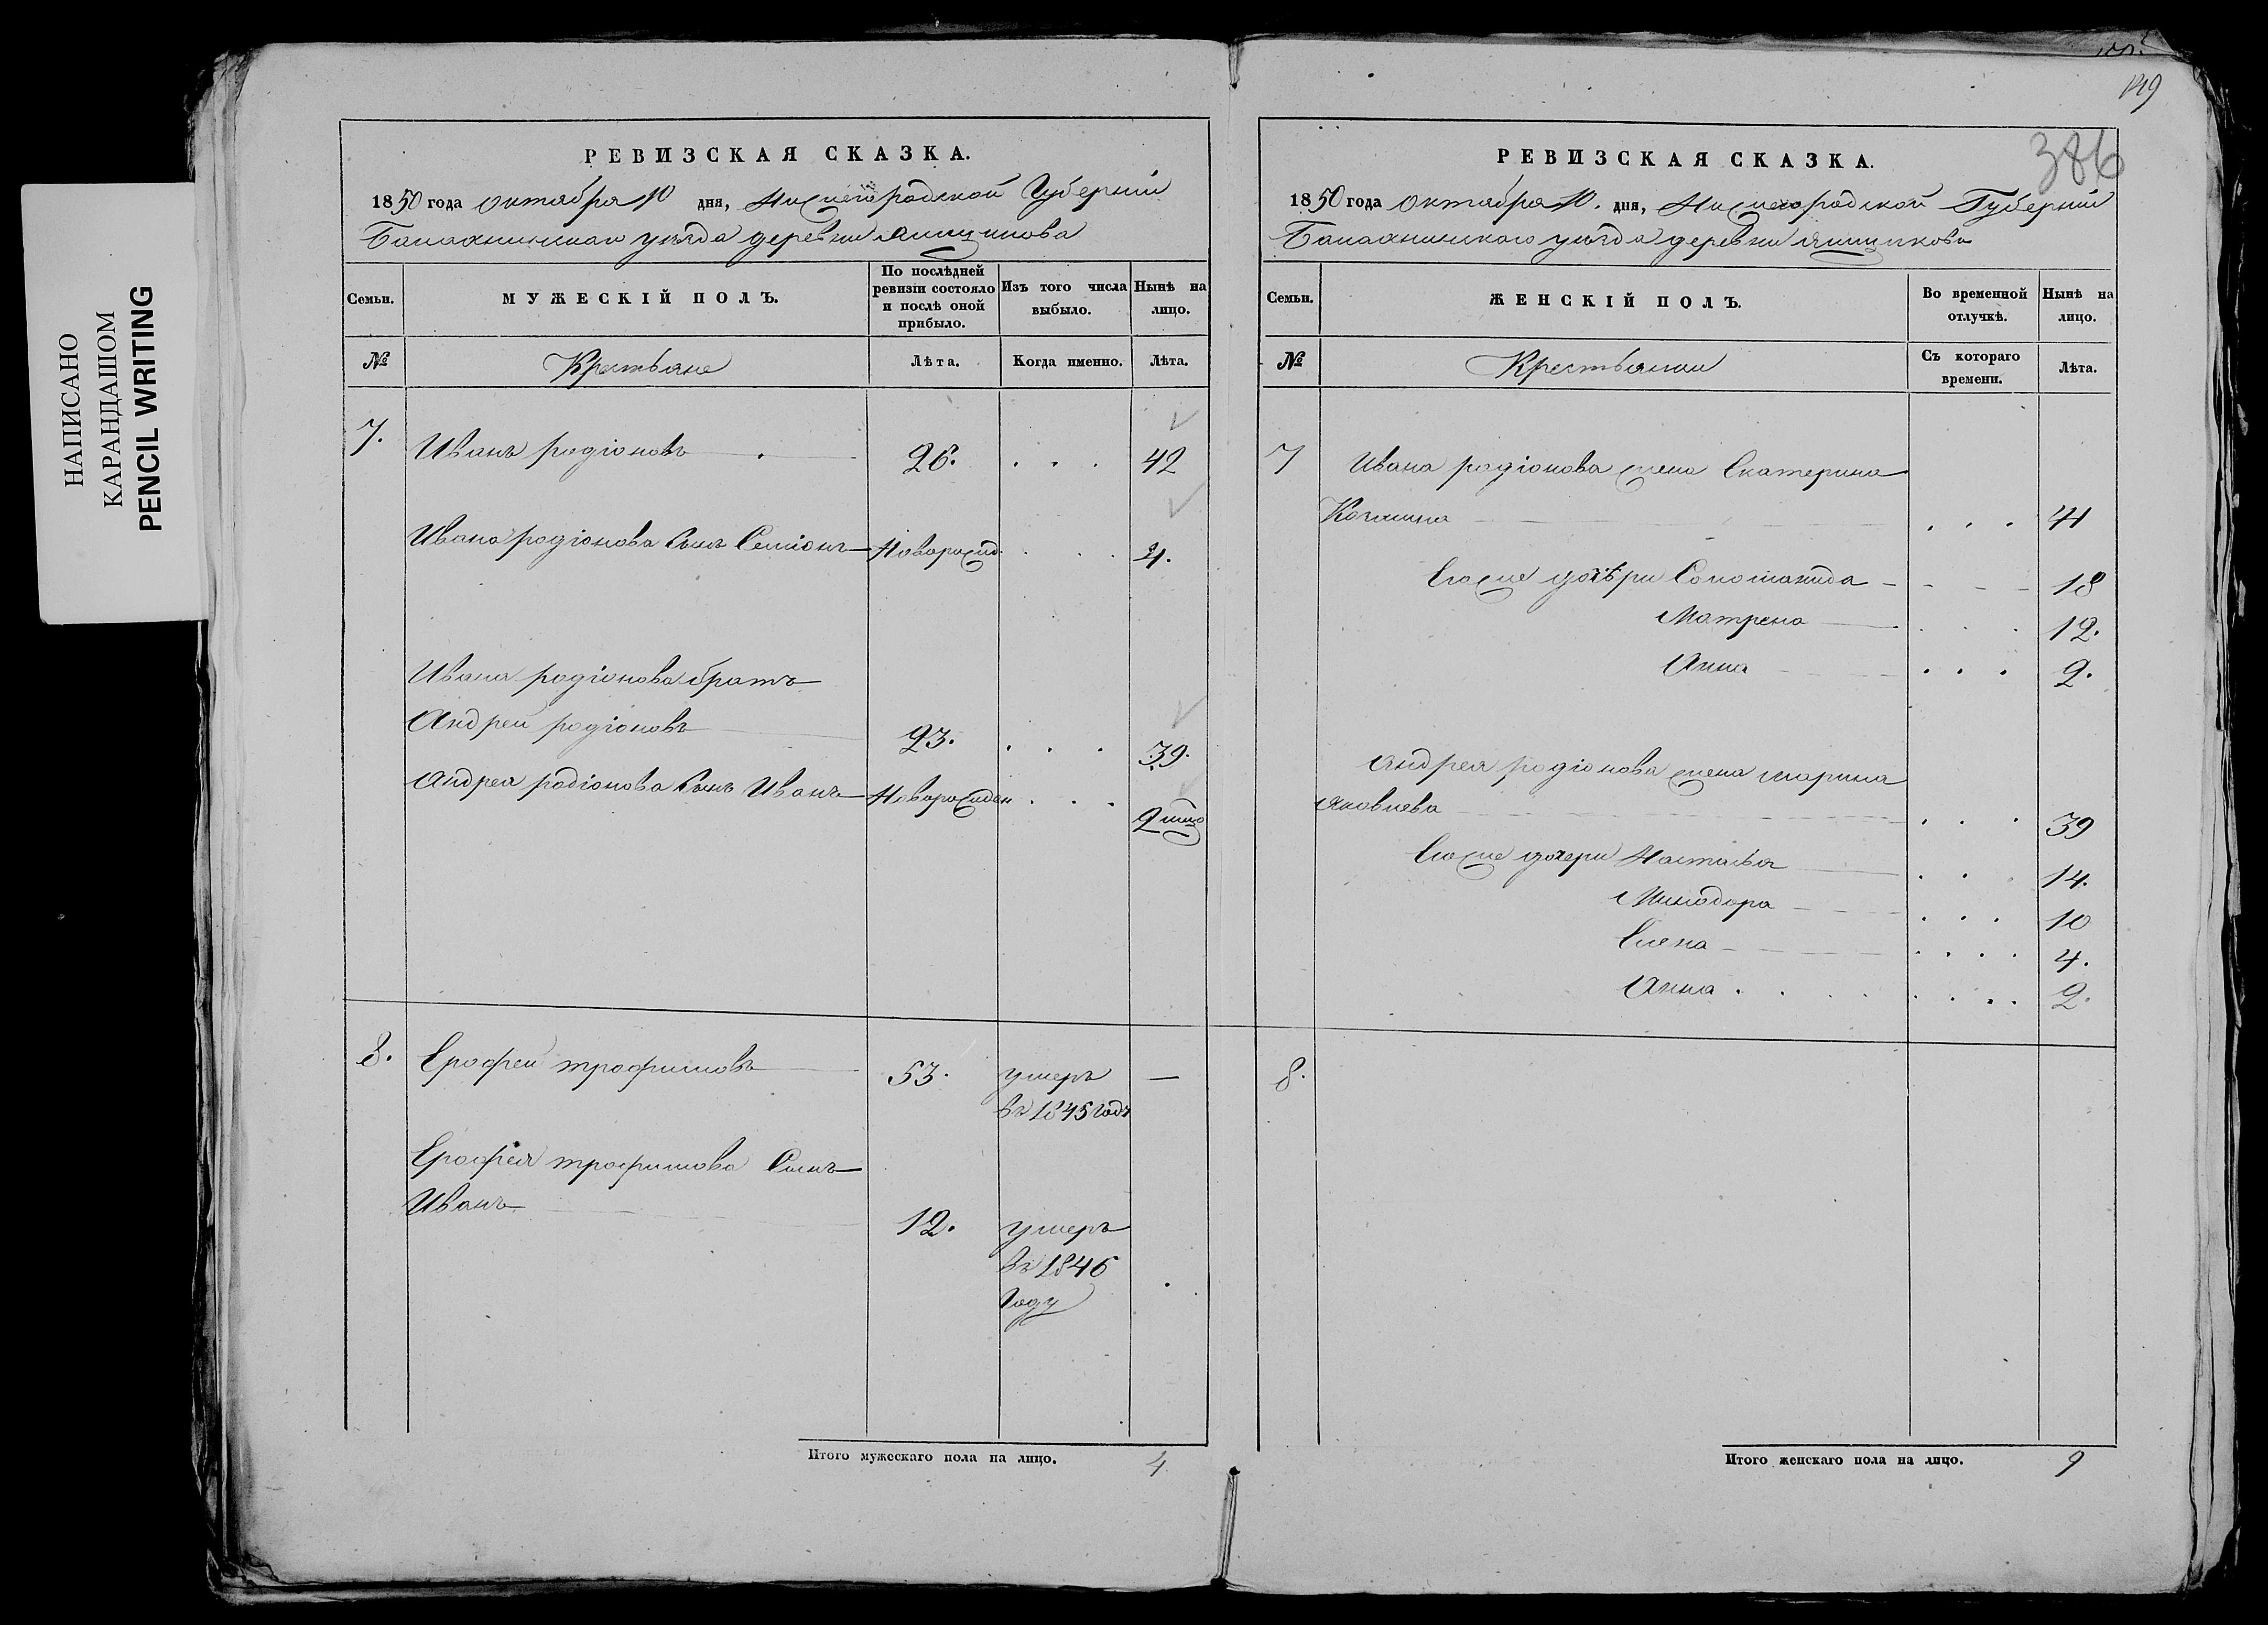 НАПИСАНО
КАРАНДАШОМ
PENCIL WRITING
149
386
РЕВИЗСКАЯ СКАЗКА.
1850 года октября 10 дня, Нижегородской Губернiи
Балахнинскаго уѣзда деревни Ящикова
Семьи. МУЖЕСКІЙ ПОЛЪ. По послѣдней ревизіи состояло и послѣ оной прибыло. Изъ того числа выбыло. Нынѣ на лицо.
№ Крестьяне Лѣта. Когда именно. Лѣта.
7. Иванъ родіоновъ 26. 42
Ивана родіонова Сынъ Семіонъ Новорожд. 4.
Ивана родіонова братъ
Андреи родіоновъ 23. 39.
Андрея родіонова Сынъ Иванъ Новорожден 2
8. Ерофеи трофимовъ 53. умеръ —
въ 1845 годѣ
Ерофея трофимова Сынъ
Иванъ 12. умеръ
въ 1846
году
Итого мужескаго пола на лицо. 4
РЕВИЗСКАЯ СКАЗКА.
1850 года октября 10. дня, Нижегородской Губернiи
Балахнинскаго уѣзда деревни Ящикова
Семьи. ЖЕНСКІЙ ПОЛЪ. Во временной отлучкѣ. Нынѣ на лицо.
№ Крестьянки Съ котораго времени. Лѣта.
7 Ивана родіонова жена Екатерина
41
Егоже дочѣри Соломанида 18
Матрена 12.
Анна 2.
Андрея родіонова жена марина
яковлева 39
Егоже дочери Настасья 14.
Минодора 10
Елена 4.
Анна 2.
8.
Итого женскаго пола на лицо. 9